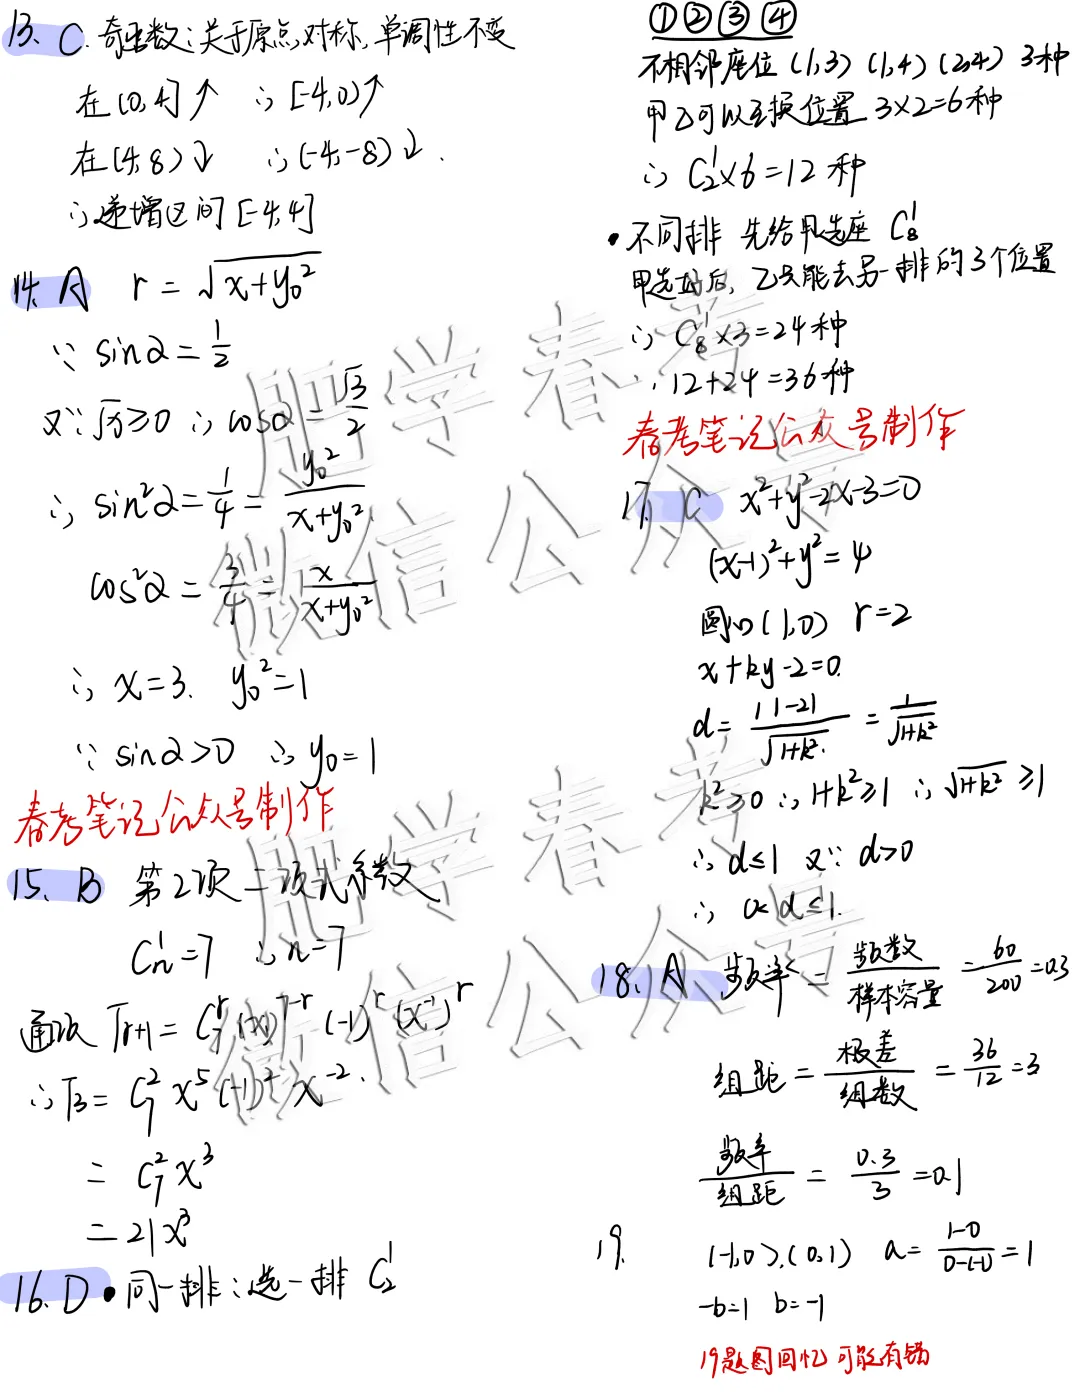 13. C. 奇函数:关于原点对称,单调性不变
在(0,4]↑ ∴[-4,0)↑
在(4,8)↓ ∴(-4,-8)↓.
∴递增区间[-4,4]
14. A r=√(x+y₀²)
∵ sinα=1/2
又∵√x≥0 ∴cosα=√3/2
∴ sin²α=1/4=y₀²/(x+y₀²)
cos²α=3/4=x/(x+y₀²)
∴ x=3. y₀²=1
∵ sinα>0 ∴y₀=1
春考笔记公众号制作
15. B 第2项二项式系数
Cₙ¹=7 ∴n=7
通项 Tr+1=C₇ʳ(x)⁷⁻ʳ(-1)ʳ(x⁻¹)ʳ
∴T₃=C₇² x⁵(-1)² x⁻².
= C₇² x³
= 21x³
16. D • 同一排:选一排 C₂¹
①②③④
不相邻座位(1,3) (1,4) (2,4) 3种
甲乙可以互换位置 3×2=6种
∴ C₂¹×6=12种
• 不同排 先给甲选座 C₈¹
甲选好后,乙只能去另一排的3个位置
∴ C₈¹×3=24种
∴12+24=36种
春考笔记公众号制作
17. C x²+y²-2x-3=0
(x-1)²+y²=4
圆心(1,0) r=2
x+ky-2=0.
d=|1-2|/√(1+k²)=1/√(1+k²)
k²≥0 ∴1+k²≥1 ∴√(1+k²)≥1
∴ d≤1 又∵ d>0
∴ 0<d≤1.
18. A 频率=频数/样本容量=60/200=0.3
组距=极差/组数=36/12=3
频率/组距=0.3/3=0.1
19. (-1,0),(0,1) a=(1-0)/(0-(-1))=1
-b=1 b=-1
19题图回忆 可能有错
肥学春考
微信公众号
肥学春考
微信公众号